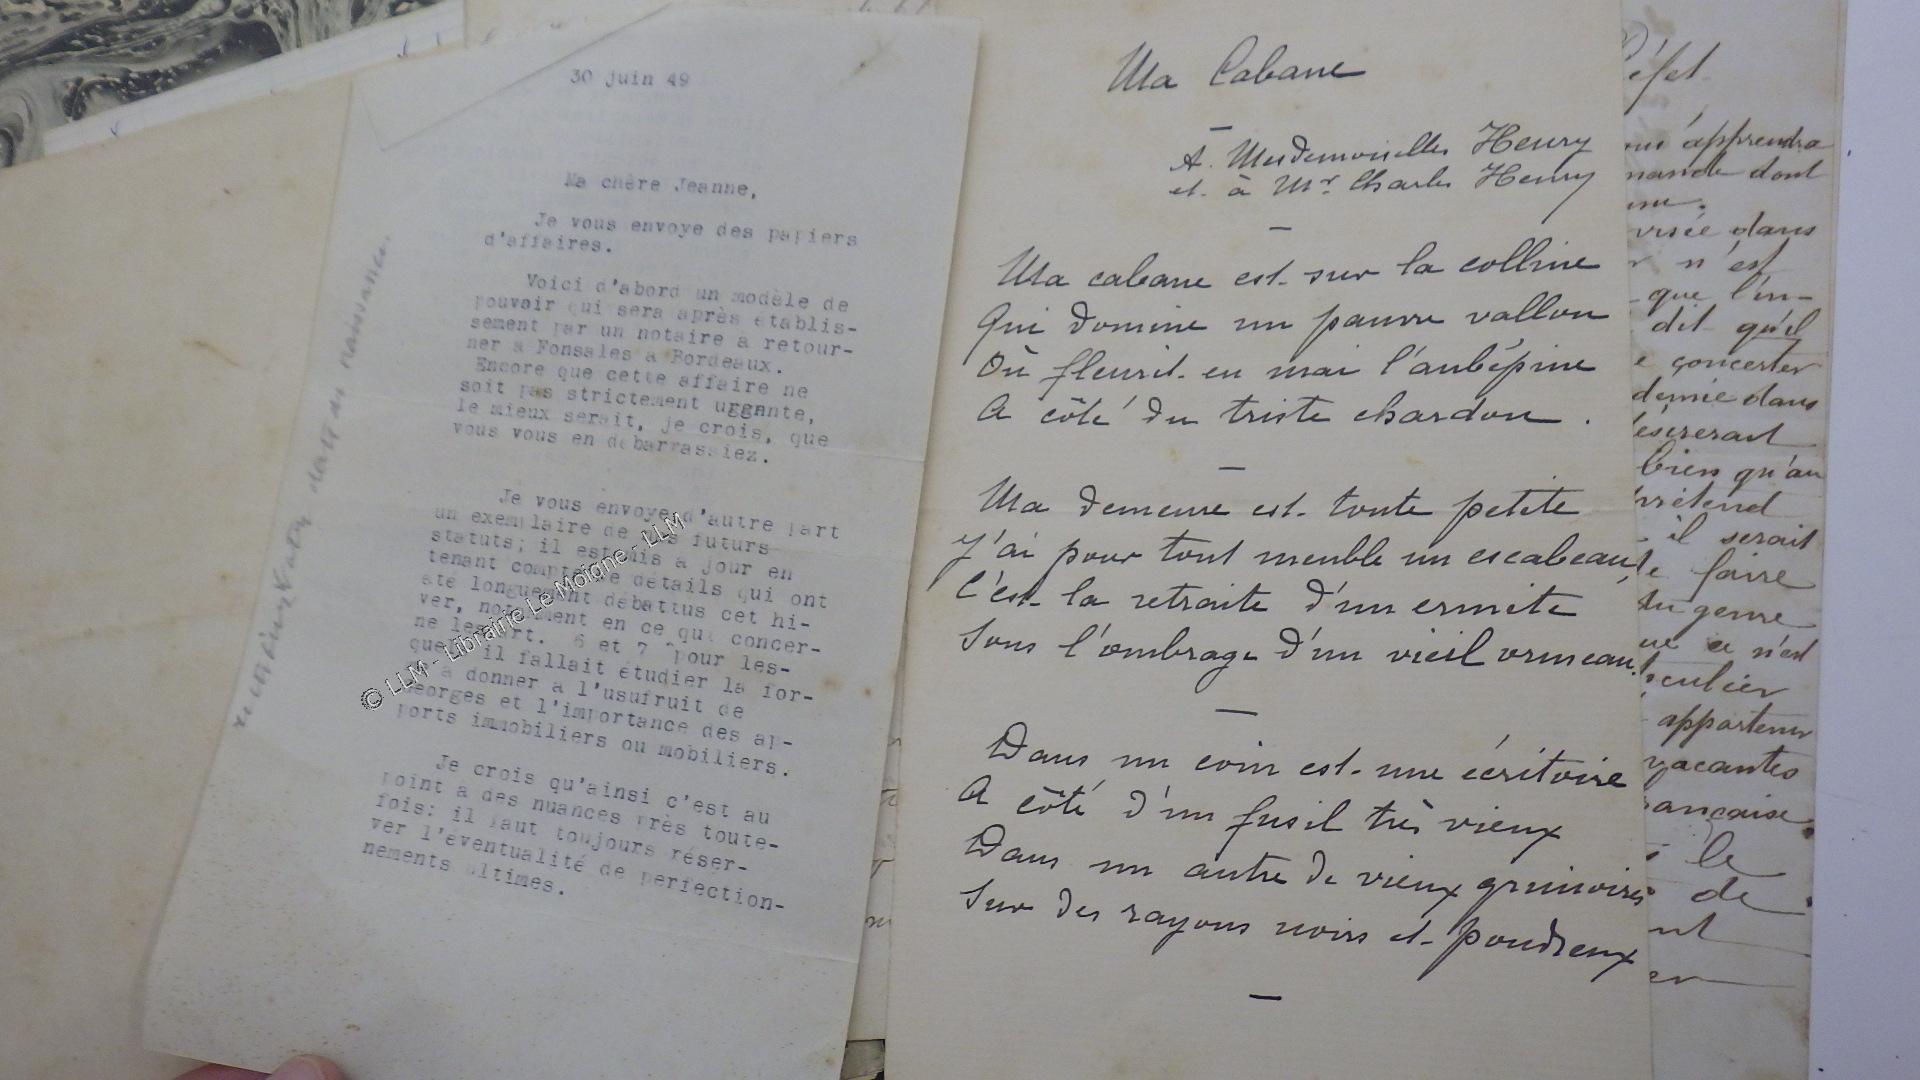 30 juin 49
Ma chère Jeanne,
Je vous envoye des papiers
d'affaires.
Voici d'abord un modèle de
pouvoir qui sera après établis-
sement par un notaire a retour-
ner a Fonsales a Bordeaux.
Encore que cette affaire ne
soit pas strictement urggnte,
le mieux serait, je crois, que
vous vous en débarrassiez.
Je vous envoye d'autre part
un exemplaire de futurs
statuts; il est mis a jour en
tenant compte de détails qui ont
été longuement débattus cet hi-
ver, notamment en ce qui concer-
ne les art. 6 et 7 pour les-
quels il fallait étudier la for-
a donner a l'usufruit de
Georges et l'importance des ap-
ports immobiliers ou mobiliers.
Je crois qu'ainsi c'est au
point a des nuances près toute-
fois: il faut toujours réser-
ver l'éventualité de perfection-
nements ultimes.
date de naissance.
© LLM - Librairie Le Moigne - LLM
Ma Cabane
A Mesdemoiselles Henry
et à Mr. Charles Henry
Ma cabane est sur la colline
Qui domine un pauvre vallon
Où fleurit en mai l'aubépine
A côté du triste chardon.
Ma demeure est toute petite
J'ai pour tout meuble un escabeau,
C'est la retraite d'un ermite
Sous l'ombrage d'un vieil ormeau.
Dans un coin est une écritoire
A côté d'un fusil très vieux
Dans un autre de vieux grimoires
Sur des rayons noirs et poudreux
apprendra
dont
dans
n'est
que l'in-
dit qu'il
concerter
dans
désirerait
bien qu'au
prétend
il serait
faire
du genre
n'est
appartenir
vacantes
le
de